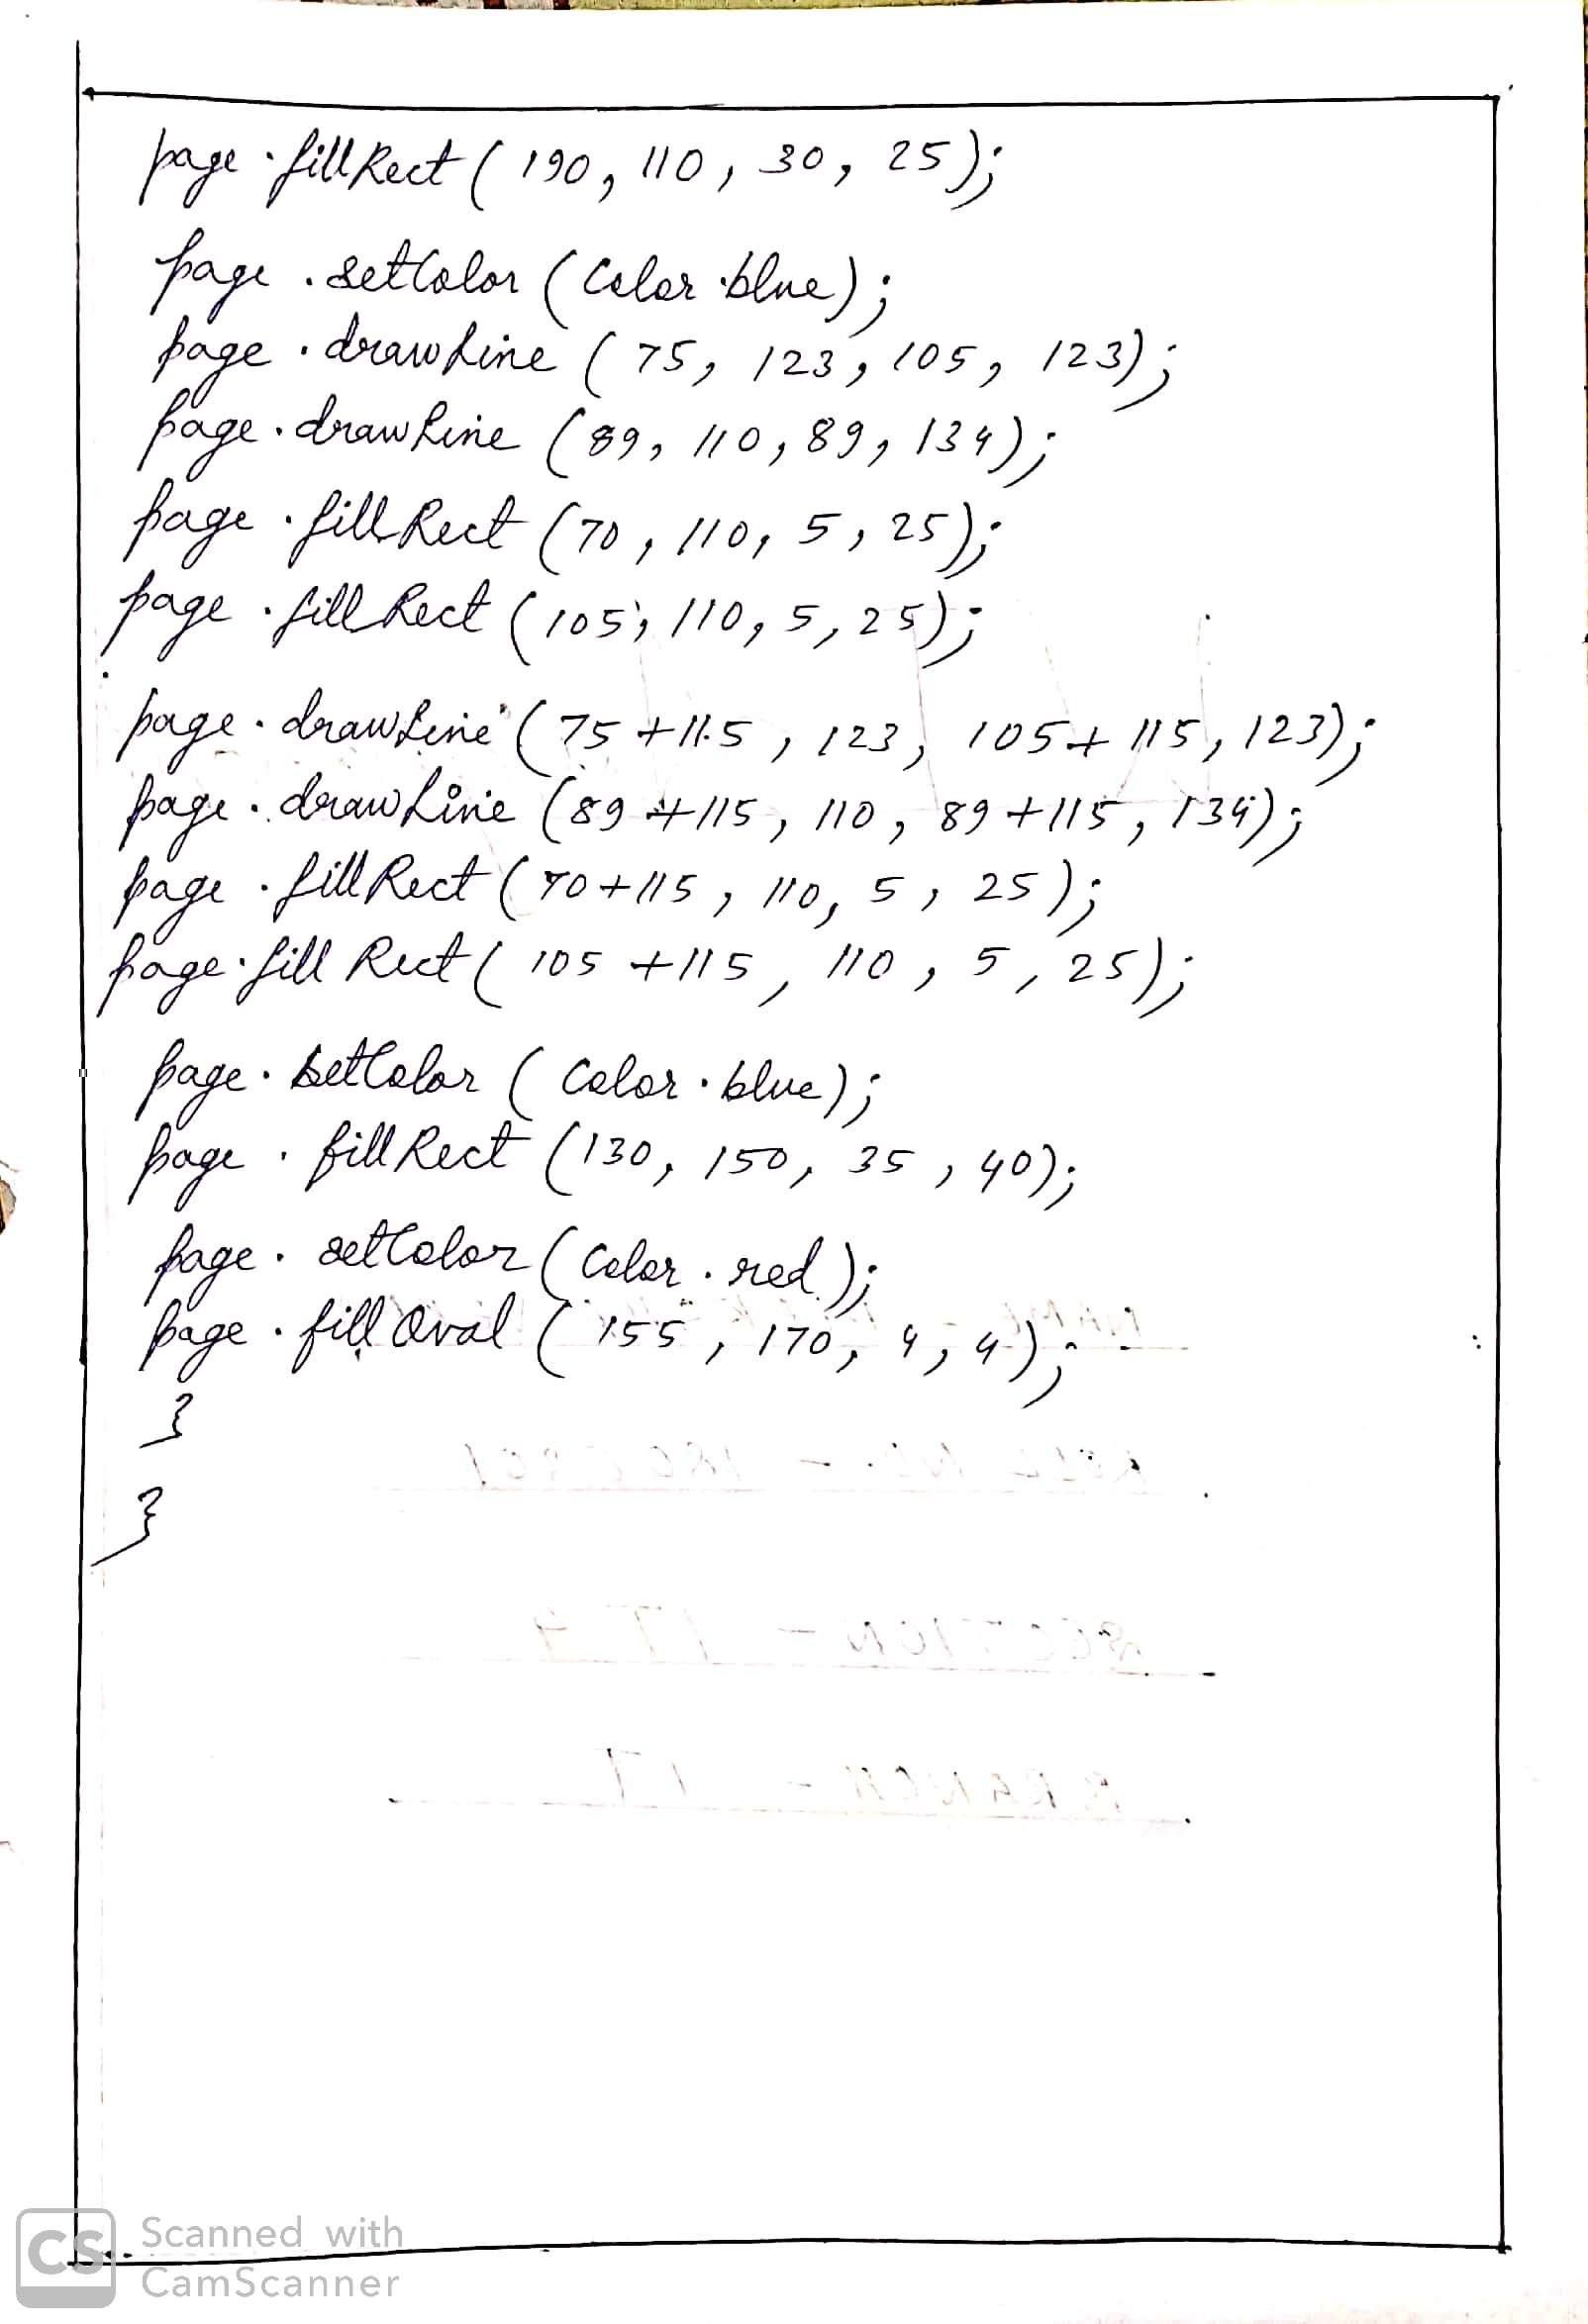 page.fillRect(190, 110, 30, 25);
page.setColor(Color.blue);
page.drawLine(75, 123, 105, 123);
page.drawLine(89, 110, 89, 134);
page.fillRect(70, 110, 5, 25);
page.fillRect(105, 110, 5, 25);
page.drawLine(75+115, 123, 105+115, 123);
page.drawLine(89+115, 110, 89+115, 134);
page.fillRect(70+115, 110, 5, 25);
page.fill Rect(105+115, 110, 5, 25);
page.setColor(Color.blue);
page.fillRect(130, 150, 35, 40);
page.setColor(Color.red);
page.fillOval(155, 170, 4, 4);
}
}
SECTION -
BRANCH - IT
CS Scanned with
CamScanner